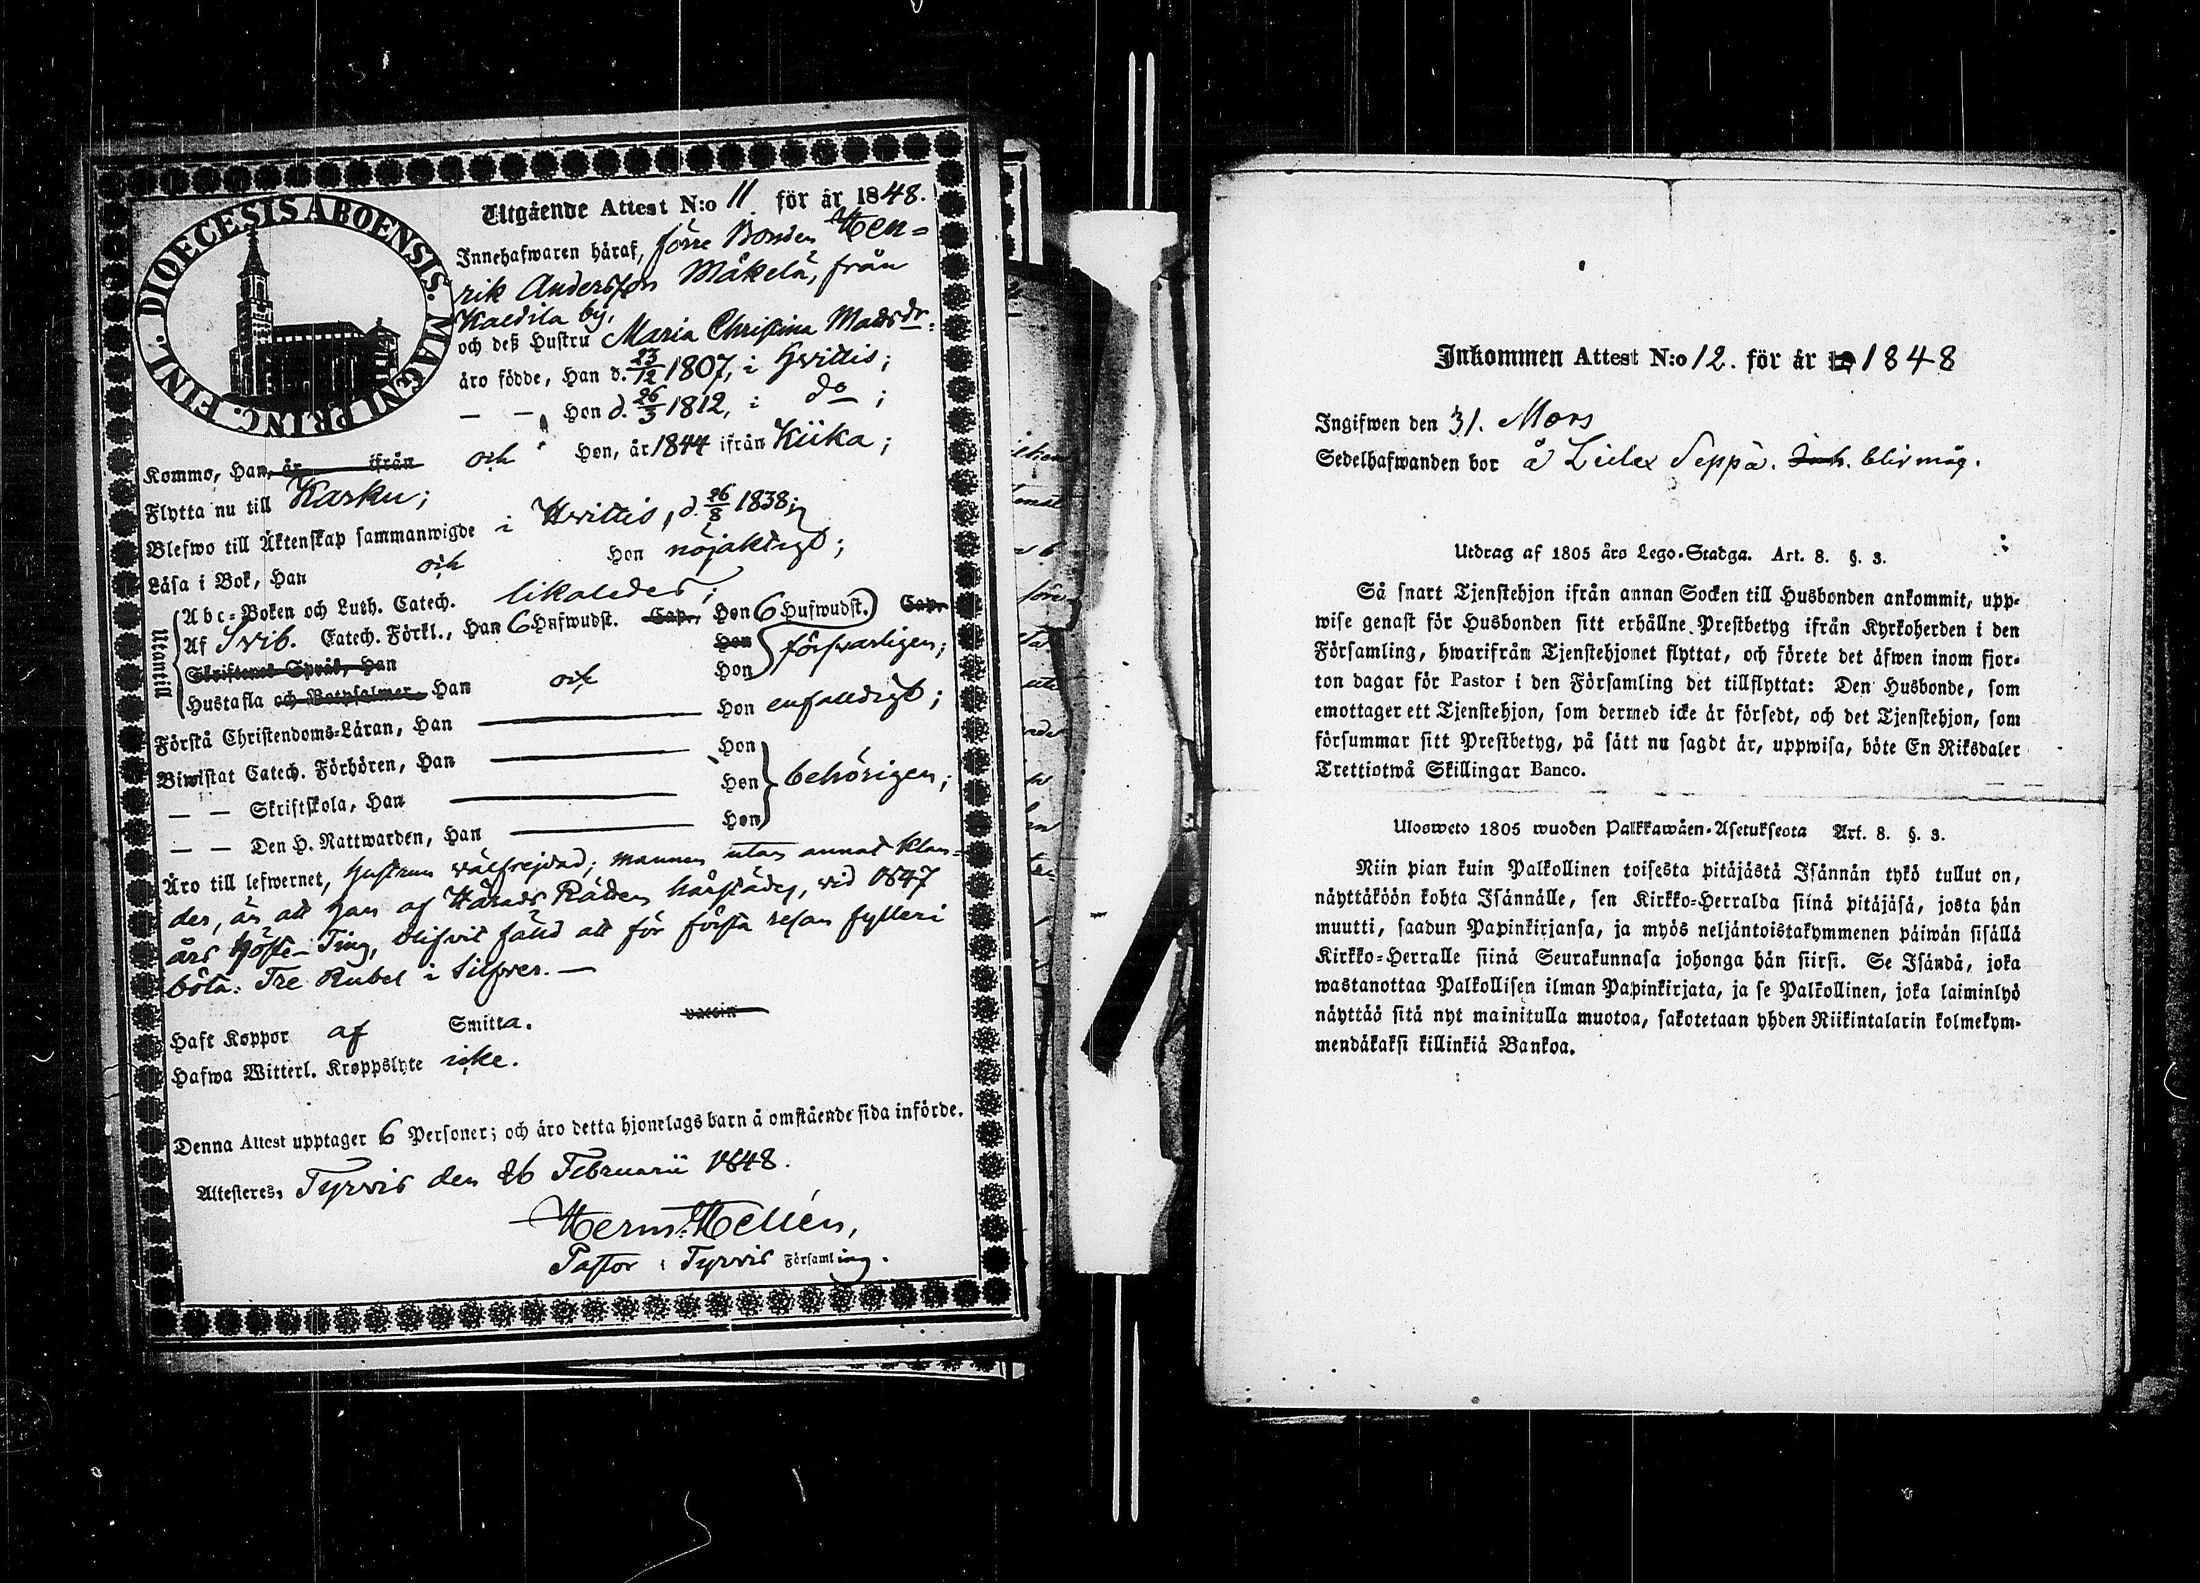 DIOECESIS ABOENSIS. MAGNI PRINC. FINL.
Utgående Attest N:o 11 för år 1848.
Innehafwaren häraf, förre Bonden Hen-
rik Andersson Mäkelä, från
Kaldila by,
och deß Hustru Maria Christina Matsdr.
äro födde, Han d. 23/12 1807, i Hvittis;
— — Hon d. 26/3 1812, i do;
Kommo, Han, år ifrån och Hon, år 1844 ifrån Kiika;
Flytta nu till Karku;
Blefwo till Äktenskap sammanwigde i Hvittis, d. 26/8 1838;
Läsa i Bok, Han och Hon nöjaktigt;
Utantill
Abc-Boken och Luth. Catech. likaledes;
Af Svib. Catech. Förkl., Han 6 Hufwudst. Cap. Hon 6 Hufwudst. Cap.
Skriftenes Språk, Han Hon försvarligen;
Hustafla och Botpsalmer Han och Hon
Förstå Christendoms-Läran, Han Hon enfaldigt;
Biwistat Catech. Förhören, Han Hon
— — Skriftskola, Han Hon behörigen;
— — Den H. Nattwarden, Han Hon
Äro till lefwernet, hustrun välfrejdad; mannen utan annat klan-
der, än att han af Härads Rätten härstädes, vid 1847
års Höste-Ting, blifvit fäld att för första resan fylleri
böta: Tre Rubel i Silfver. —
Haft Koppor af Smitta. vaccin
Hafwa Witterl. Kroppslyte icke.
Denna Attest upptager 6 Personer; och äro detta hjonelags barn å omstående sida införde.
Attesteres, Tyrvis den 26 Februarii 1848.
Herm. Hellén,
Pastor i Tyrvis Församling.
Inkommen Attest N:o 12. för år 18 1848
Ingifwen den 31. Mars
Sedelhafwanden bor å Seppä. blir måg.
Utdrag af 1805 års Lego-Stadga. Art. 8. §. 3.
Så snart Tjenstehjon ifrån annan Socken till Husbonden ankommit, upp-
wise genast för Husbonden sitt erhållne Prestbetyg ifrån Kyrkoherden i den
Församling, hwarifrån Tjenstehjonet flyttat, och förete det äfwen inom fjor-
ton dagar för Pastor i den Församling det tillflyttat: Den Husbonde, som
emottager ett Tjenstehjon, som dermed icke är försedt, och det Tjenstehjon, som
försummar sitt Prestbetyg, på sätt nu sagdt är, uppwisa, böte En Riksdaler
Trettiotwå Skillingar Banco.
Ulosweto 1805 wuoden Palkkawäen-Asetuksesta Art. 8. §. 3.
Niin pian kuin Palkollinen toisesta pitäjästä Isännän tykö tullut on,
näyttäköön kohta Isännälle, sen Kirkko-Herralda siinä pitäjäsä, josta hän
muutti, saadun Papinkirjansa, ja myös neljäntoistakymmenen päiwän sisällä
Kirkko-Herralle siinä Seurakunnasa johonga hän siirsi. Se Isändä, joka
wastanottaa Palkollisen ilman Papinkirjata, ja se Palkollinen, joka laiminlyö
näyttää sitä nyt mainitulla muotoa, sakotetaan yhden Riikintalarin kolmekym-
mendäkaksi killinkiä Bankoa.